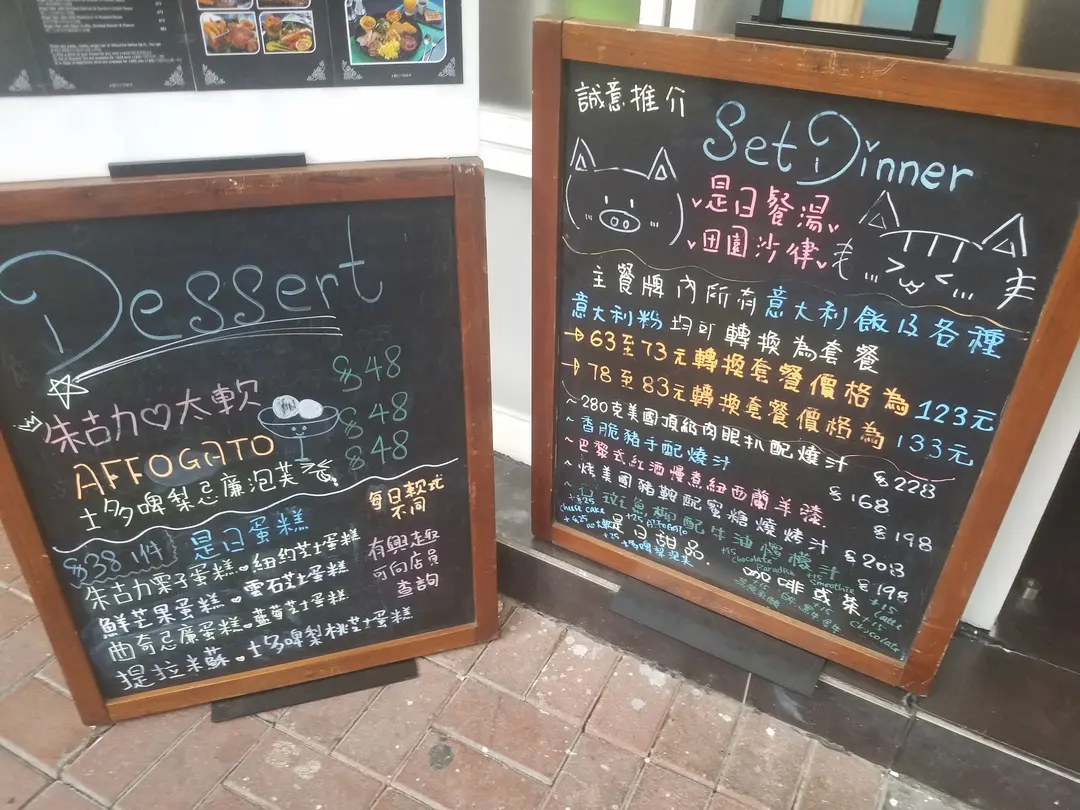 Dessert
朱古力♡大軟 $48
AFFOGATO $48
士多啤梨忌廉泡芙 $48
$38 1件 是日蛋糕
每日款式
不同
朱古力果子蛋糕 • 紐約芝士蛋糕
鮮芒果蛋糕 • 雲石芝士蛋糕
曲奇忌廉蛋糕 • 藍莓芝士蛋糕
提拉米蘇 • 士多啤梨桃芝士蛋糕
有興趣
可向店員
查詢
誠意推介
Set Dinner
是日餐湯
田園沙律
主餐牌內所有意大利飯及各種
意大利粉均可轉換為套餐
→63至73元轉換套餐價格為 123元
→78至83元轉換套餐價格為 133元
~280克美國頂級肉眼扒配燒汁 $228
~香脆豬手配燒汁 $168
~巴黎式紅酒慢煮紐西蘭羊膝 $198
~烤美國豬鞍配蜜糖燒烤汁 $208
~石斑魚柳配牛油檸檬汁 $198
+$25
cheese cake
是日甜品
+25 AFFOGATO
咖啡或茶
+15 chocolate
Paradise
+15 Smoothie
+15 Latte
+15 Chocolate